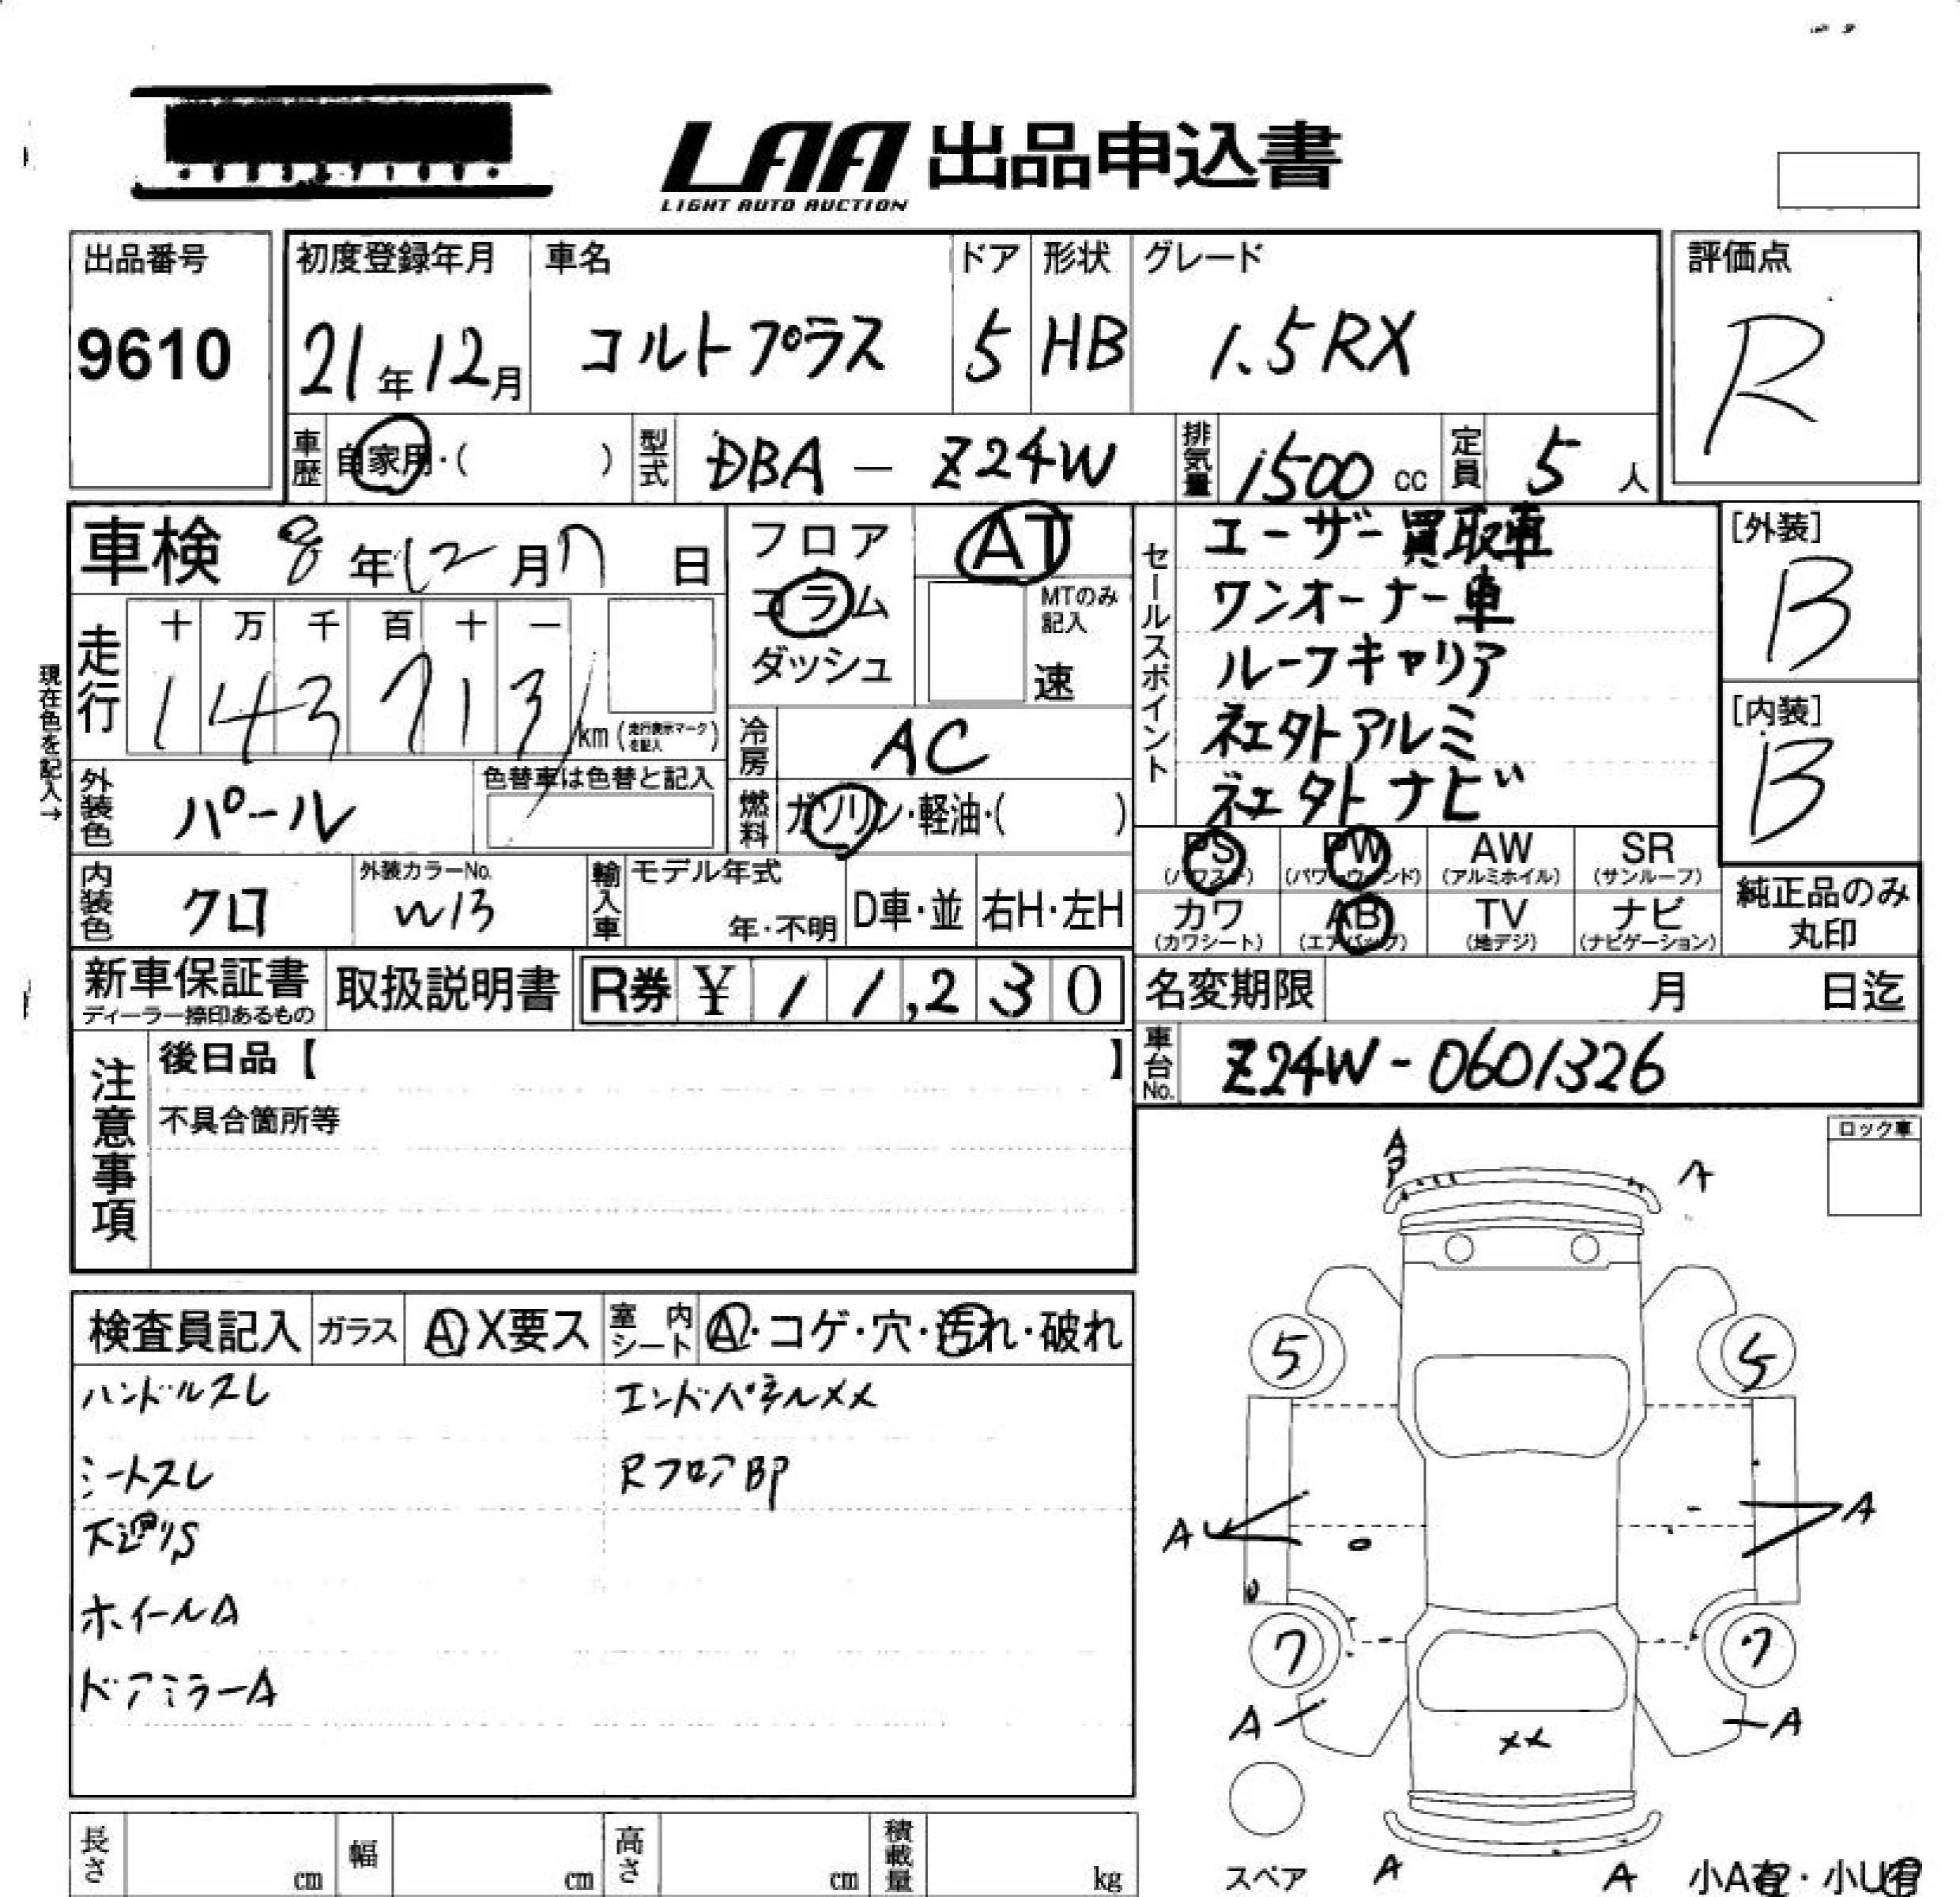 LAA 出品申込書
LIGHT AUTO AUCTION
出品番号
9610
初度登録年月
21年12月
車名
コルトプラス
ドア
5
形状
HB
グレード
1.5RX
評価点
R
車歴 自家用・( )
型式 DBA - Z24W
排気量 1500 cc
定員 5 人
車検 8年12月7日
フロア
コラム
ダッシュ
AT
MTのみ記入
速
セールスポイント
ユーザー買取車
ワンオーナー車
ルーフキャリア
社外アルミ
社外ナビ
[外装]
B
[内装]
B
現在色を記入→
走行
十 万 千 百 十 一
1 4 3 7 1 3
km (走行表示マークを記入)
冷房 AC
外装色 パール
色替車は色替と記入
燃料 ガソリン・軽油・( )
PS (パワステ)
PW (パワーウィンド)
AW (アルミホイル)
SR (サンルーフ)
カワ (カワシート)
AB (エアバック)
TV (地デジ)
ナビ (ナビゲーション)
純正品のみ
丸印
内装色 クロ
外装カラーNo.
W13
輸入車
モデル年式
年・不明
D車・並
右H・左H
新車保証書
ディーラー捺印あるもの
取扱説明書
R券 ¥ 11,230
名変期限 月 日迄
車台No. Z24W-0601326
注意事項
後日品【 】
不具合箇所等
ロック車
A
A
検査員記入
ガラス A X要ス
室内シート A・コゲ・穴・汚れ・破れ
ハンドルスレ
エンドパネルXX
シートスレ
RフロアBP
下廻りS
ホイールA
ドアミラーA
5 5
A A
7 7
A A
XX
スペア
A A
小A有・小U有
長さ cm
幅 cm
高さ cm
積載量 kg